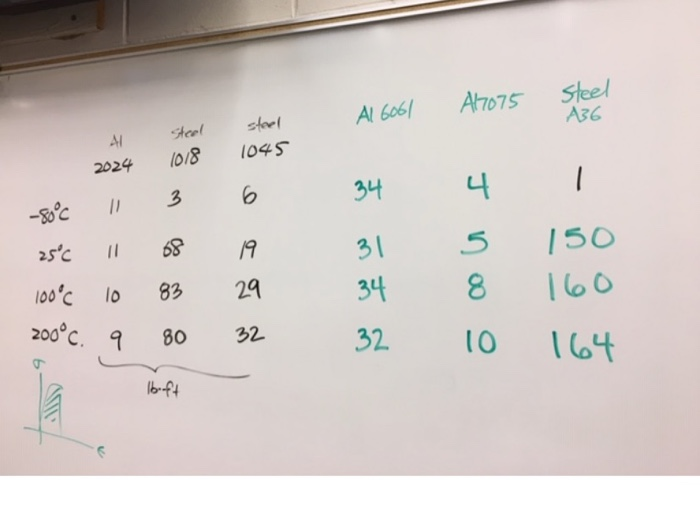 Al Steel steel Al 6061 Al7075 Steel
2024 1018 1045 A36
-80°C 11 3 6 34 4 1
25°C 11 68 19 31 5 150
100°C 10 83 29 34 8 160
200°C. 9 80 32 32 10 164
lb·ft
σ
ε